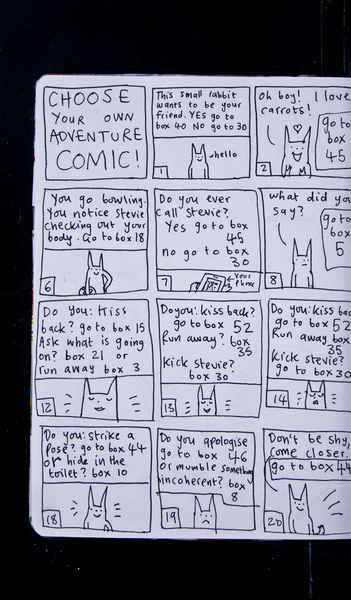 CHOOSE
YOUR OWN
ADVENTURE
COMIC!
This small rabbit
wants to be your
friend. YES go to
box 40 NO go to 30
hello
1
Oh boy! I love
carrots!
go to
box
45
2
You go bowling.
You notice Stevie
checking out your
body. Go to box 18
6
Do you ever
call Stevie?
Yes go to box
45
no go to box
30
your
phone
7
what did you
say?
go to
box
5
8
Do you: Kiss
back? go to box 15
Ask what is going
on? box 21 or
run away box 3
12
Do you: kiss back?
go to box 52
Run away? box
35
Kick Stevie?
box 30
13
Do you: kiss bac
go to box 52
Run away box
35
Kick Stevie?
go to box 30
14
Do you: strike a
pose? go to box 44
or hide in the
toilet? box 10
18
Do you apologise
go to box 46
or mumble something
incoherent? box
8
19
Don't be shy,
come closer.
go to box 44
20